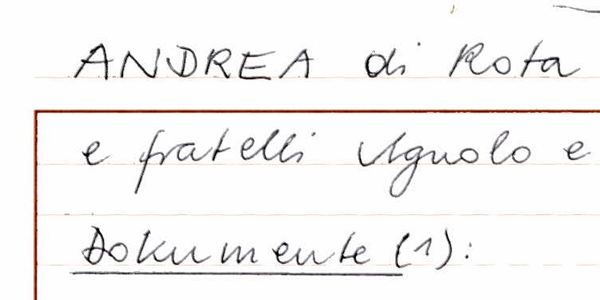 ANDREA di Rota
e fratelli Agnolo e
Dokumente (1):